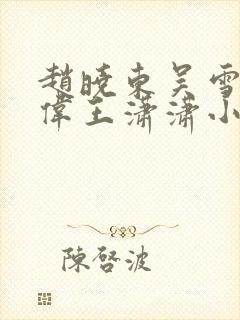 趙曉東吳雪
偉王瀟瀟小
陳啓波